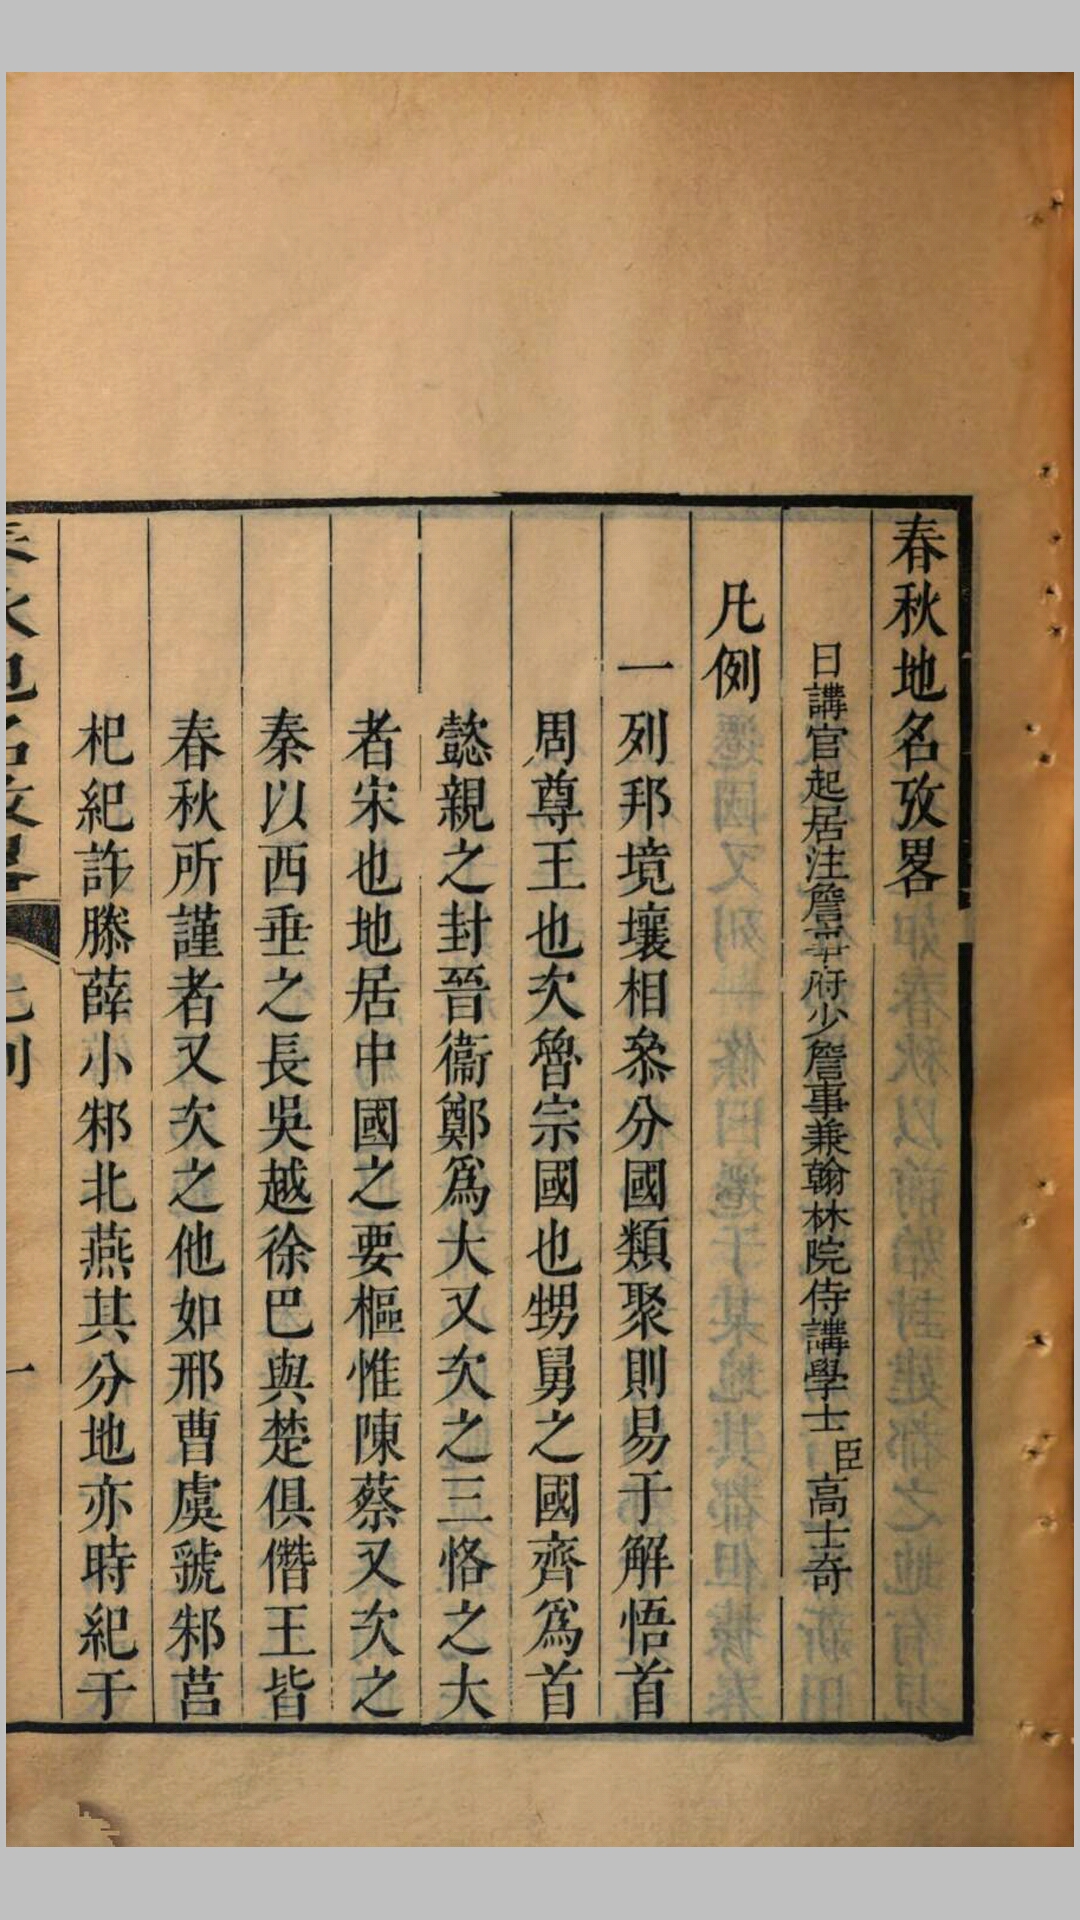 春秋地名攷畧
日講官起居注詹事府少詹事兼翰林院侍講學士臣高士奇
凡例
一列邦境壤相叅分國類聚則易于解悟首
周尊王也次魯宗國也甥舅之國齊爲首
懿親之封晉衞鄭爲大又次之三恪之大
者宋也地居中國之要樞惟陳蔡又次之
秦以西垂之長吳越徐巴與楚俱僭王皆
春秋所謹者又次之他如邢曹虞虢邾莒
杞紀許滕薛小邾北燕其分地亦時紀于
春秋地名攷畧 凡例 一